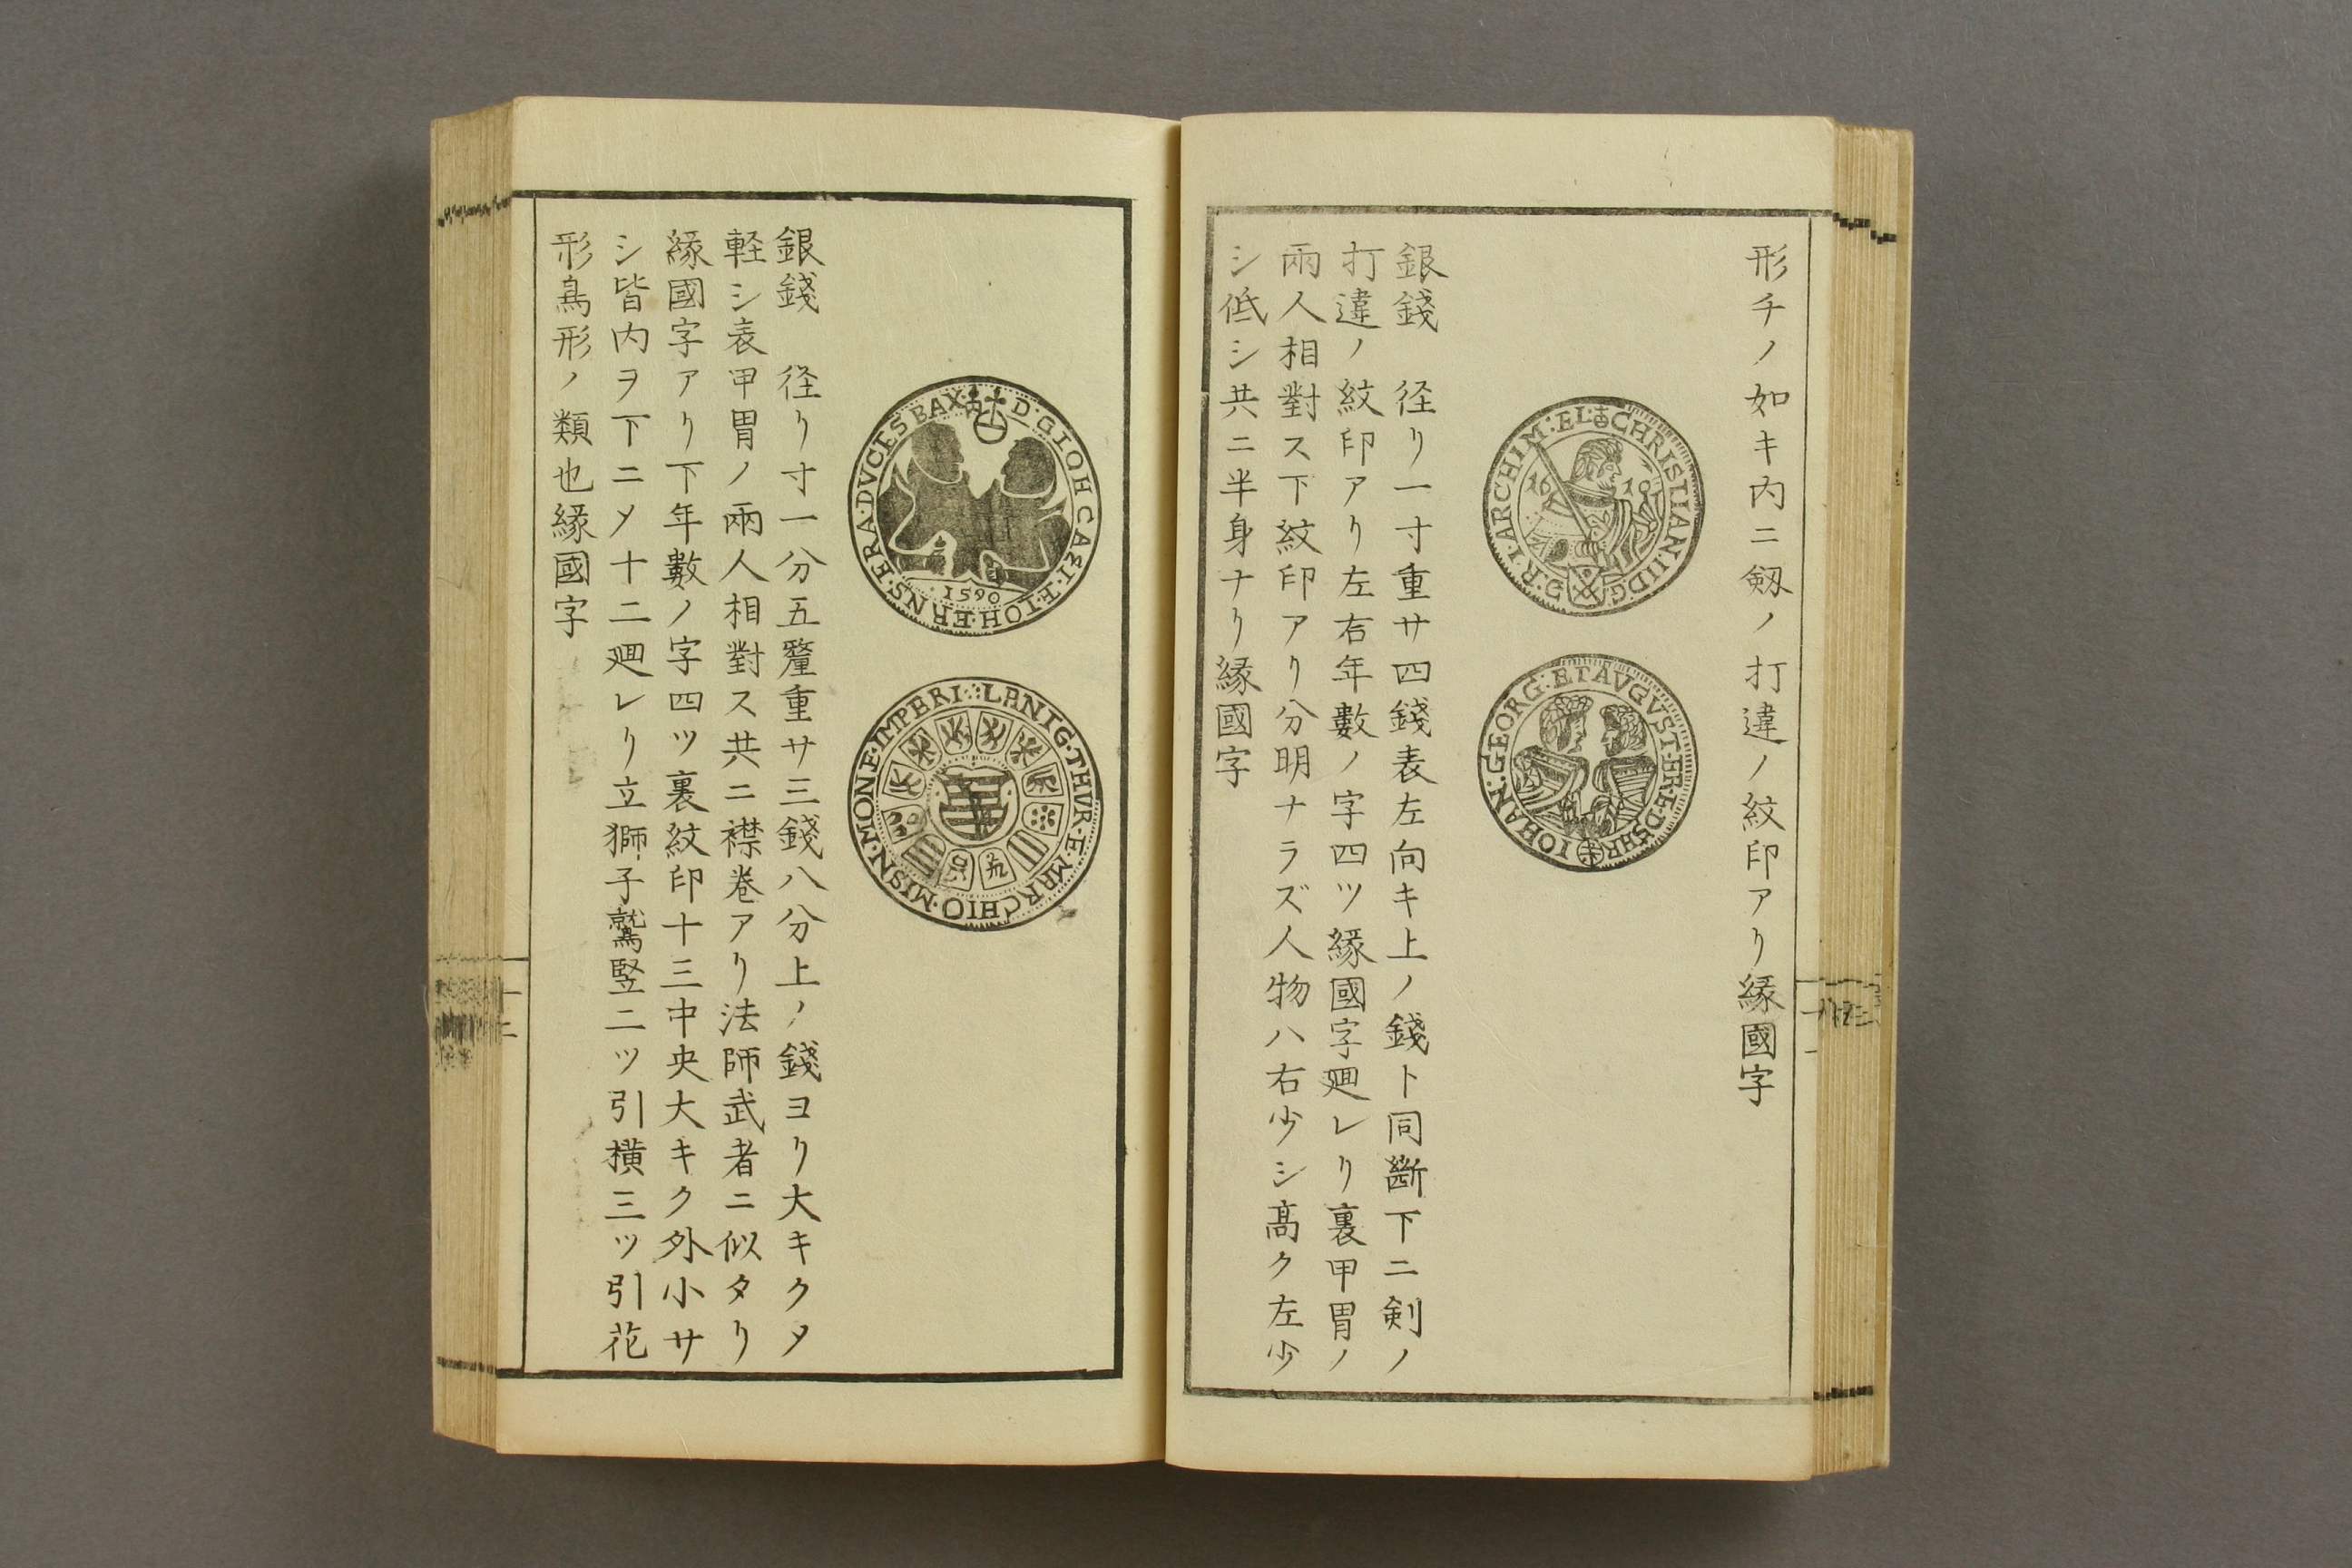 形チノ如キ内ニ剱ノ打違ノ紋印アリ縁國字
CHRISTIAN·II·D:G·
·R·I·ARCHIM:EL:
16 10
IOHAN:GEORG:ET AVGVST:
銀錢 径リ一寸重サ四錢表左向キ上ノ錢ト同斷下ニ剣ノ
打違ノ紋印アリ左右年數ノ字四ツ縁國字廻レリ裏甲冑ノ
兩人相對ス下紋印アリ分明ナラズ人物ハ右少シ髙ク左少
シ低シ共ニ半身ナリ縁國字
D:G·IOH
·E·IOH·ERNS·
DVCES
1590
THVR·E·
CHIO·MISN·MONE·IMPERI
銀錢 径リ寸一分五釐重サ三錢八分上ノ錢ヨリ大キクメ
軽シ表甲冑ノ兩人相對ス共ニ襟卷アリ法師武者ニ似タリ
縁國字アリ下年數ノ字四ツ裏紋印十三中央大キク外小サ
シ皆内ヲ下ニメ十二廻レリ立獅子鷲竪二ツ引橫三ツ引花
形鳥形ノ類也縁國字